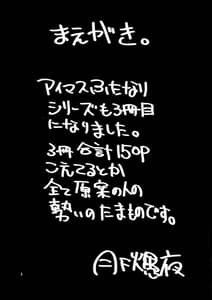 まえがき。
アイマスふたなり
シリーズも3冊目
になりました。
3冊合計150P
こえてるとか
全て原案のMの
勢いのたまものです。
月下煌夜